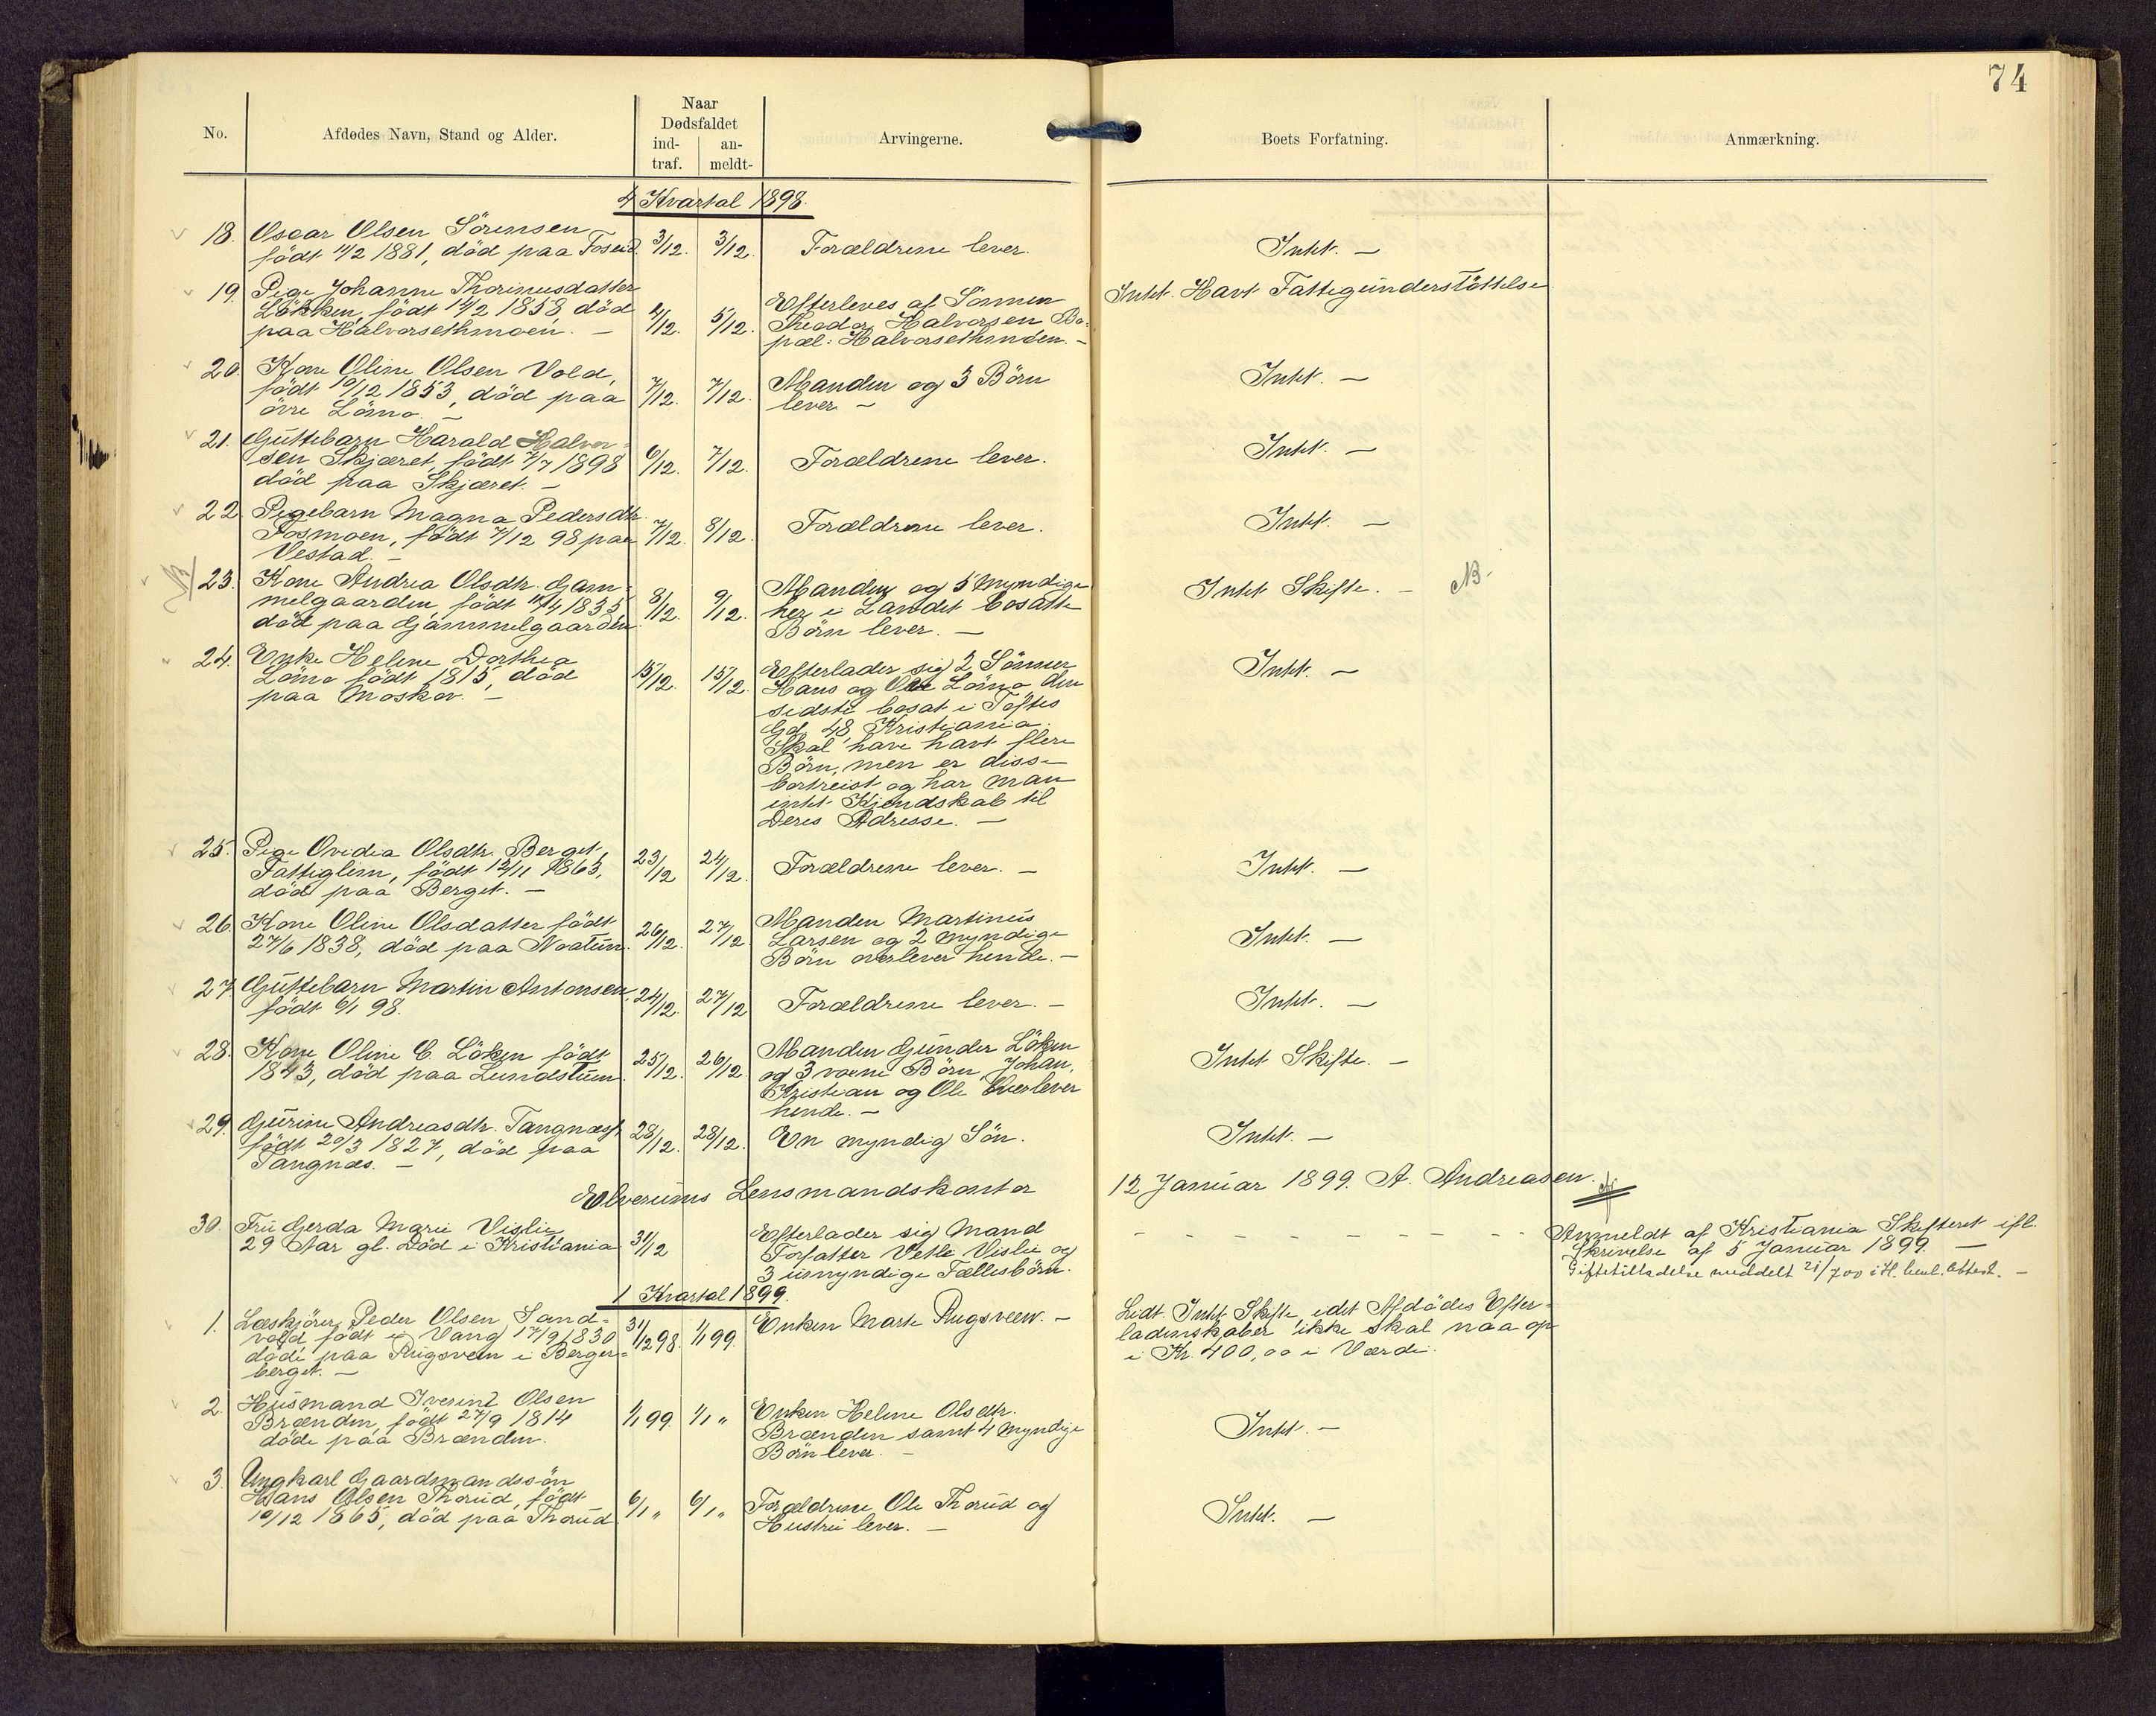 74
No.
Afdødes Navn, Stand og Alder.
Naar
Dødsfaldet
ind-
traf.
an-
meldt-
Arvingerne.
Boets Forfatning.
Anmærkning.
4 Kvartal 1898.
18. Oscar Olsen Sörensen
födt 11/2 1881, död paa Fosend. 3/12. 3/12. Forældrene lever. Intet. —
19. Pige Johanne Thorinusdatter
Lökken, födt 14/2 1858, död
paa Halvorsethmoen. — 4/12. 5/12.
Efterleves af Sönnen
Theodor Halvorsen Bo-
pæl: Halvorsethmoen. —
Intet. Havt Fattigunderstöttelse
20. Kone Oline Olsen Vold,
födt 10/12 1853, död paa
övre Lömo. — 7/12. 7/12.
Manden og 3 Börn
lever —
Intet. —
21. Guttebarn Harald Halvor-
sen Skjæret, födt 7/7 1898
död paa Skjæret. — 6/12. 7/12. Forældrene lever. Intet. —
22. Pigebarn Magna Pedersdtr.
Fosmoen, födt 7/12 98 paa
Vestad. — 7/12. 8/12. Forældrene lever. Intet. —
NB
23. Kone Andrea Olsdtr. Gam-
melgaarden, födt 11/4 1835
död paa Gammelgaarden. 8/12. 9/12.
Manden og 5 myndige
her i Landet bosatte
Börn lever. —
Intet Skifte. — NB.
24. Enke Helene Dorthea
Lömo födt 1815, död
paa Moskov. — 15/12. 15/12.
Efterlader sig 2 Sönner
Hans og Ole Lömo den
sidste bosat i Töftes
Gd. 48, Kristiania.
Skal have havt flere
Börn, men er disse
bortreist og har man
intet Kjendskab til
Deres Adresse. —
Intet. —
25. Pige Ovidia Olsdtr. Berget,
Fattiglem, födt 12/11 1863,
död paa Berget. — 23/12 24/12. Forældrene lever. — Intet. —
26. Kone Oline Olsdatter födt
27/6 1838, död paa Noatun. 26/12. 27/12
Manden Martinus
Larsen og 2 myndige
Börn overlever hende. —
Intet. —
27. Guttebarn Martin Antonsen,
födt 6/1 98. 24/12. 27/12 Forældrene lever. — Intet. —
28. Kone Oline C. Löken födt
1843, död paa Lundstuen. 25/12. 26/12.
Manden Gunder Löken
og 3 voxne Börn, Johan,
Kristian og Ole Overlever
hende. —
Intet Skifte. —
29. Gurine Andreasdtr. Tangnæs,
födt 20/3 1827, död paa
Tangnæs. — 28/12. 28/12. En myndig Sön. Intet. —
Elverums Lensmandskontor 12 Januar 1899. A. Andreasen.
30. Fru Gerda Marie Vislie
29 Aar gl. Död i Kristiania 31/12
Efterlader sig Mand
Forfatter Vetle Vislie og
3 umyndige Fællesbörn.
Anmeldt af Kristiania Skifteret ifl.
Skrivelse af 5 Januar 1899. —
Giftetilladelse meddelt 21/7 00 i H. Attest. —
1 Kvartal 1899.
1. Læskjörer Peder Olsen Sand-
vold, födt i Vang 17/9 1830
döde paa Rugsveen i Berger-
berget. — 31/12 98. 1/1 99. Enken Marte Rugsveen. —
Lidt. Intet Skifte, idet Afdödes Efter-
ladenskaber ikke skal naa op
i Kr. 400,00 i Værdi.
2. Husmand Iverint Olsen
Brænden, födt 27/9 1814
döde paa Brænden. 1/1 99. 1/1 „
Enken Helene Olsdtr.
Brænden samt 4 myndige
Börn lever. —
Intet. —
3. Ungkarl Gaardmandssön
Hans Olsen Thorud, födt
10/12 1865, död paa Thorud. 6/1 „ 6/1 „
Forældrene Ole Thorud og
Hustru lever. —
Intet. —